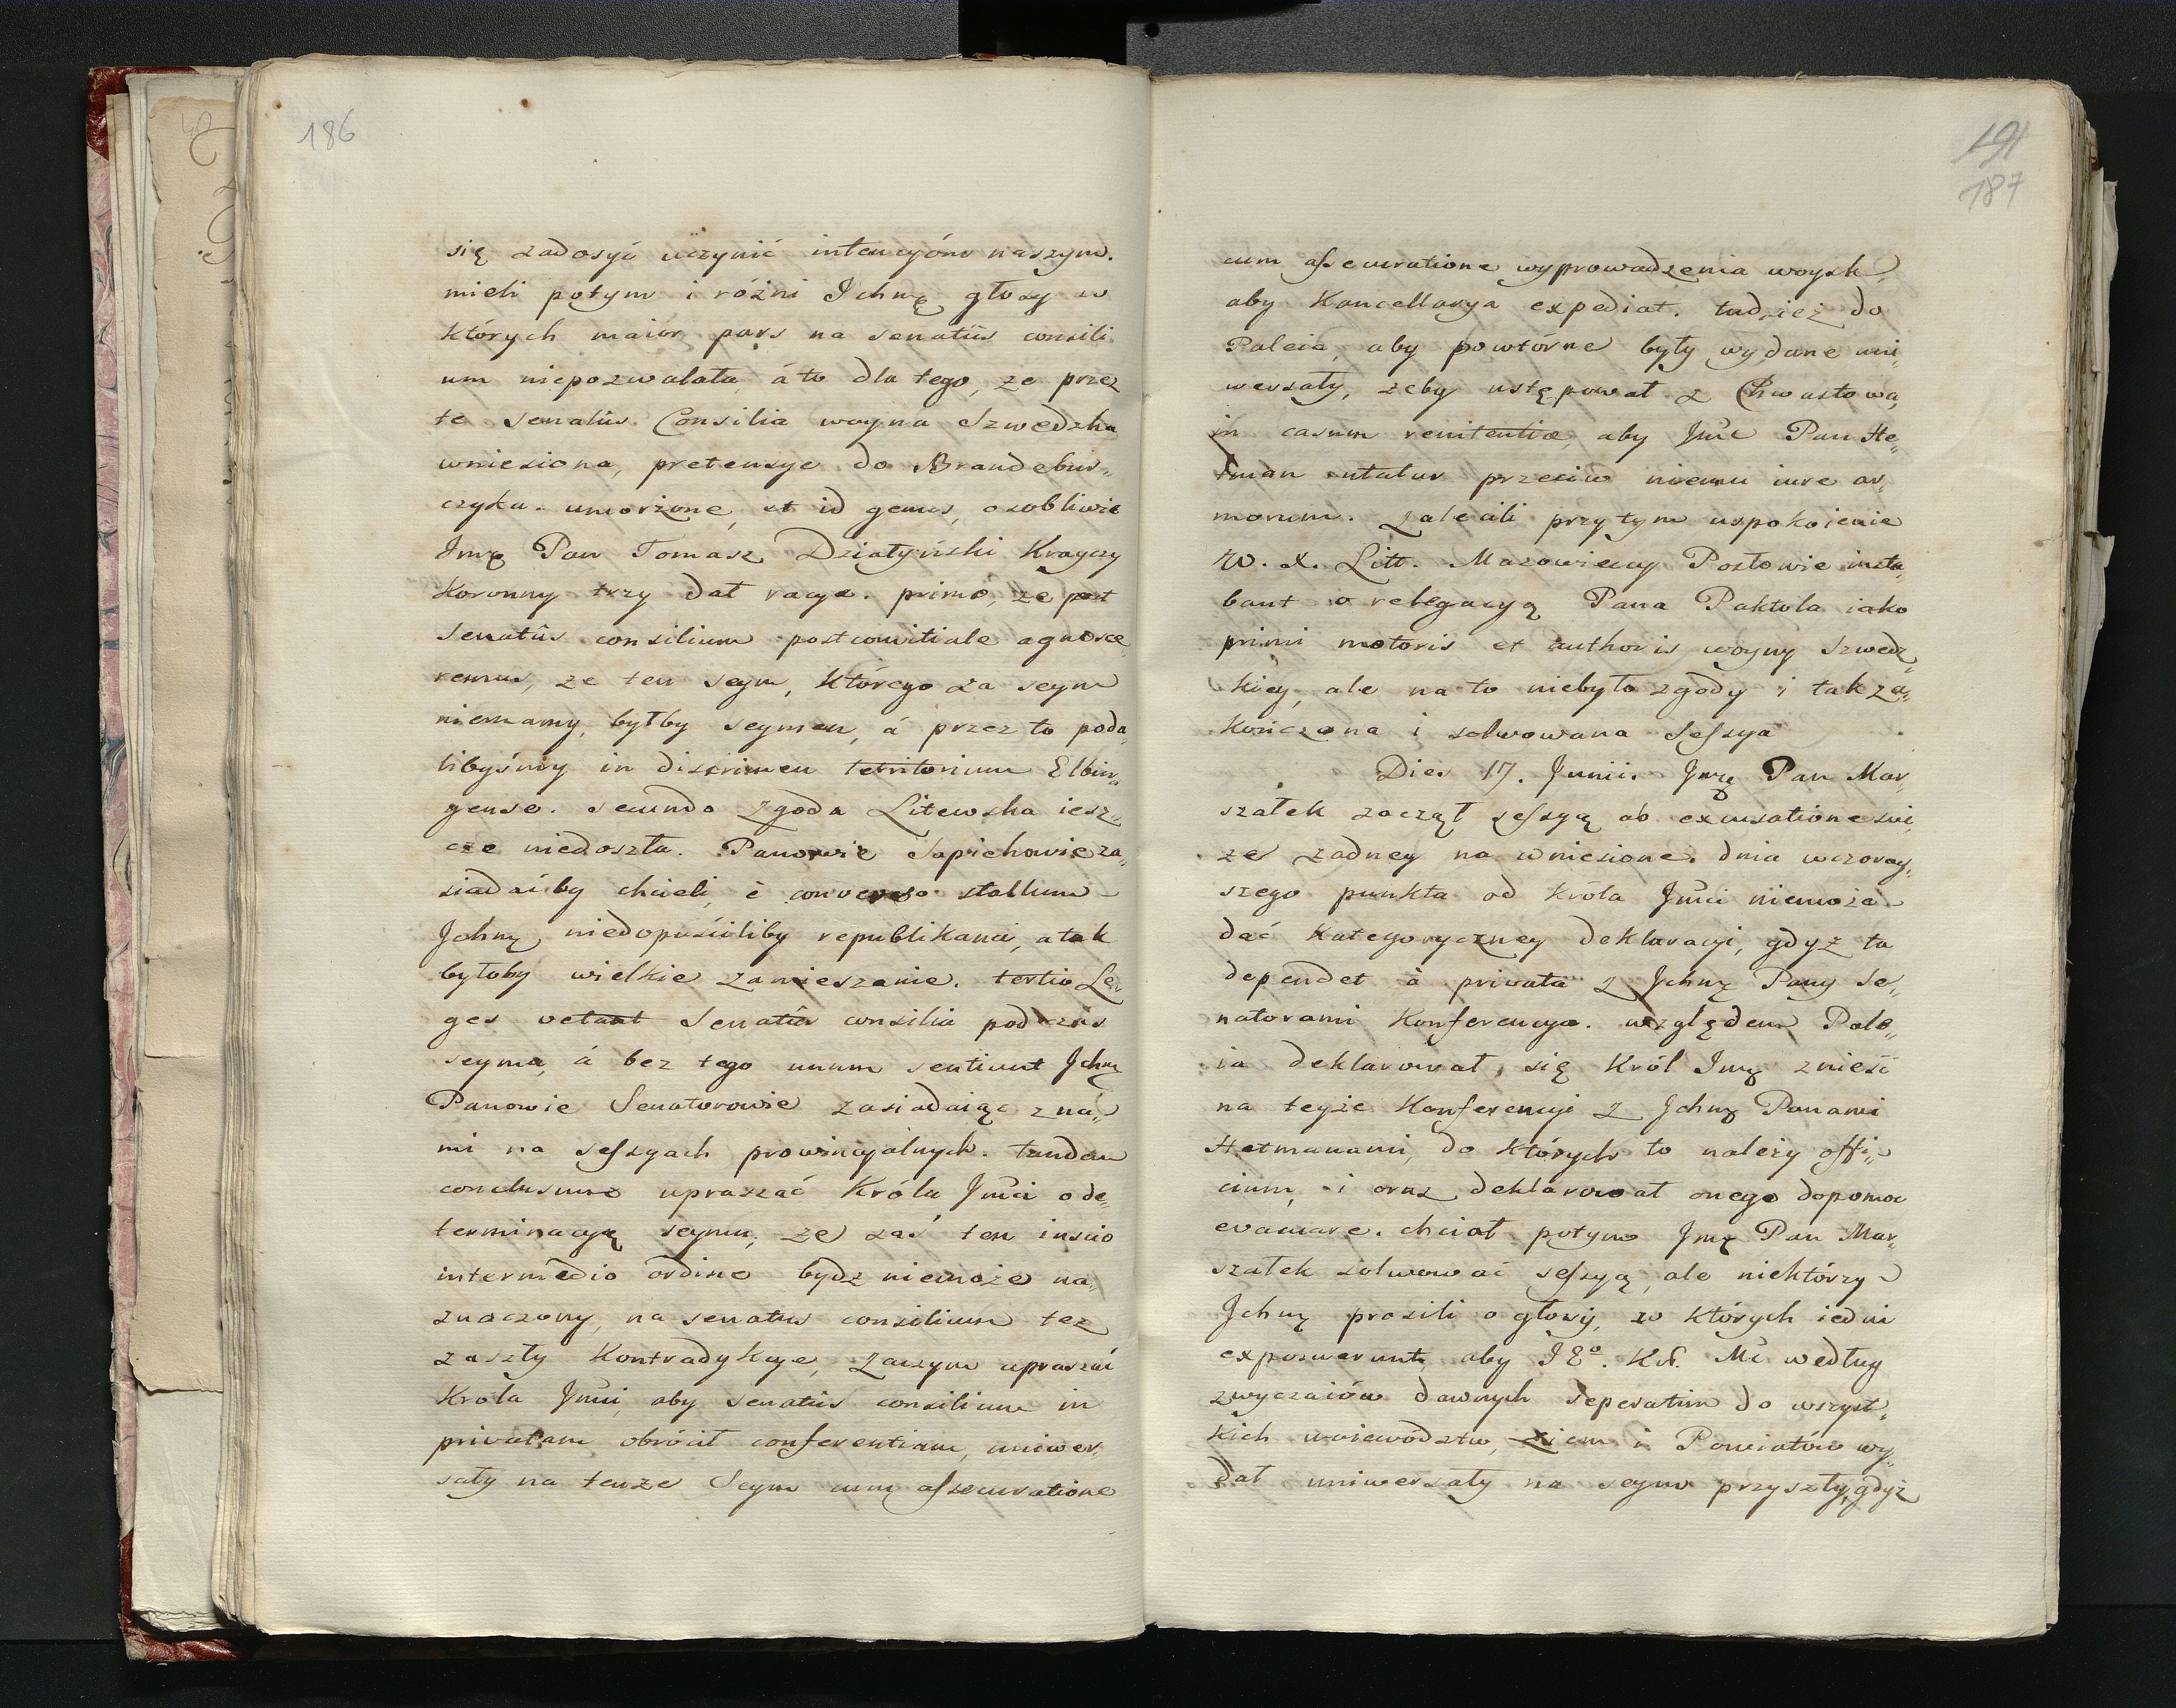 186
się zadosyć uczynić intencyóm naszym.
mieli potym i różni Ichmę głosy w
których maior pars na senatûs consili
um niepozwalała, á to dla tego, ze przez
te senatûs Consilia woyna Szwedzka
wniesiona, pretensye do Brandebur„
czyka umorzone, et id genus, osobliwie
Jmę Pan Tomasz Działyński Krayczy
Koronny trzy dał racye. primo, ze post
senatûs consilium postcomitiale agnosce„
remus, ze ten seym, którego za seym
niemamy, byłby seymem, á przez to poda„
libyśmy in discrimen territorium Elbin„
gense. secundo Zgoda Litewska iesz„
cze niedoszła. Panowie Sapiehowie za„
siadaćby chcieli, è converso stallum
Jchmę niedopuściliby republikanci, a tak
byłoby wielkie zamieszanie. tertio Le„
ges vetant Senatûs consilia podczas
seymu, á bez tego unum sentiunt Jchmę
Panowie Senatorowie zasiadaiąc z na„
mi na sessyach prowincyalnych. tandem
conclusum upraszać Króla Jmći o de„
terminacyę seymu, ze zaś ten inscio
intermedio ordine bydz niemoże na„
znaczony, na senatus consilium tez
zaszły Kontradykcye, zaczym upraszać
Krola Jmći, aby senatûs consilium in
privatam obrócił conferentiam, uniwer„
sały na tenze Seym cum assecuratione
191
187
cum assecuratione wyprowadzenia woysk,
aby Kancellarya expediat. tudzież do
Paleia, aby powtórne były wydane uni„
wersały, zeby ustępował z Chwastowa,
in casum renitentiæ, aby Jmć Pan He„
tman utatur przeciw niemu iure ar„
morum. zalecili przytym uspokoienie
W. X. Litt. Mazowieccy Posłowie insta„
bant o relegacyą Pana Paktola iako
primi motoris et authoris woyny Szwedz„
kiey, ale na to niebyło zgody i tak za„
kończona i solwowana Sessya
Dies 17. Junii. Jmę Pan Mar„
szałek zaczął sessyą ab excusatione sui,
ze zadney na wniesione dnia wczoray„
szego punkta od króla Jmći niemoże
dać Kategoryczney deklaracyi, gdyz ta
dependet à privata z Jchmę Pany Se„
natorami Konferencya. względem Pale„
ia deklarował się Król Jmę znieść
na teyże Konferencyi z Jchmę Panami
Hetmanami, do których to należy offi„
cium, i oraz deklarował onego dopomoc
evacuare. chciał potym Jmę Pan Mar„
szałek solwować sessyą, ale niektórzy
Jchmę prosili o głosy, w których iedni
exposuerunt, aby J Eº. KM. Mć według
zwyczaiów dawnych seperatim do wszyst„
kich woiewództw, ziem i Powiatów wy„
dał uniwersały na seym przyszły, gdyż